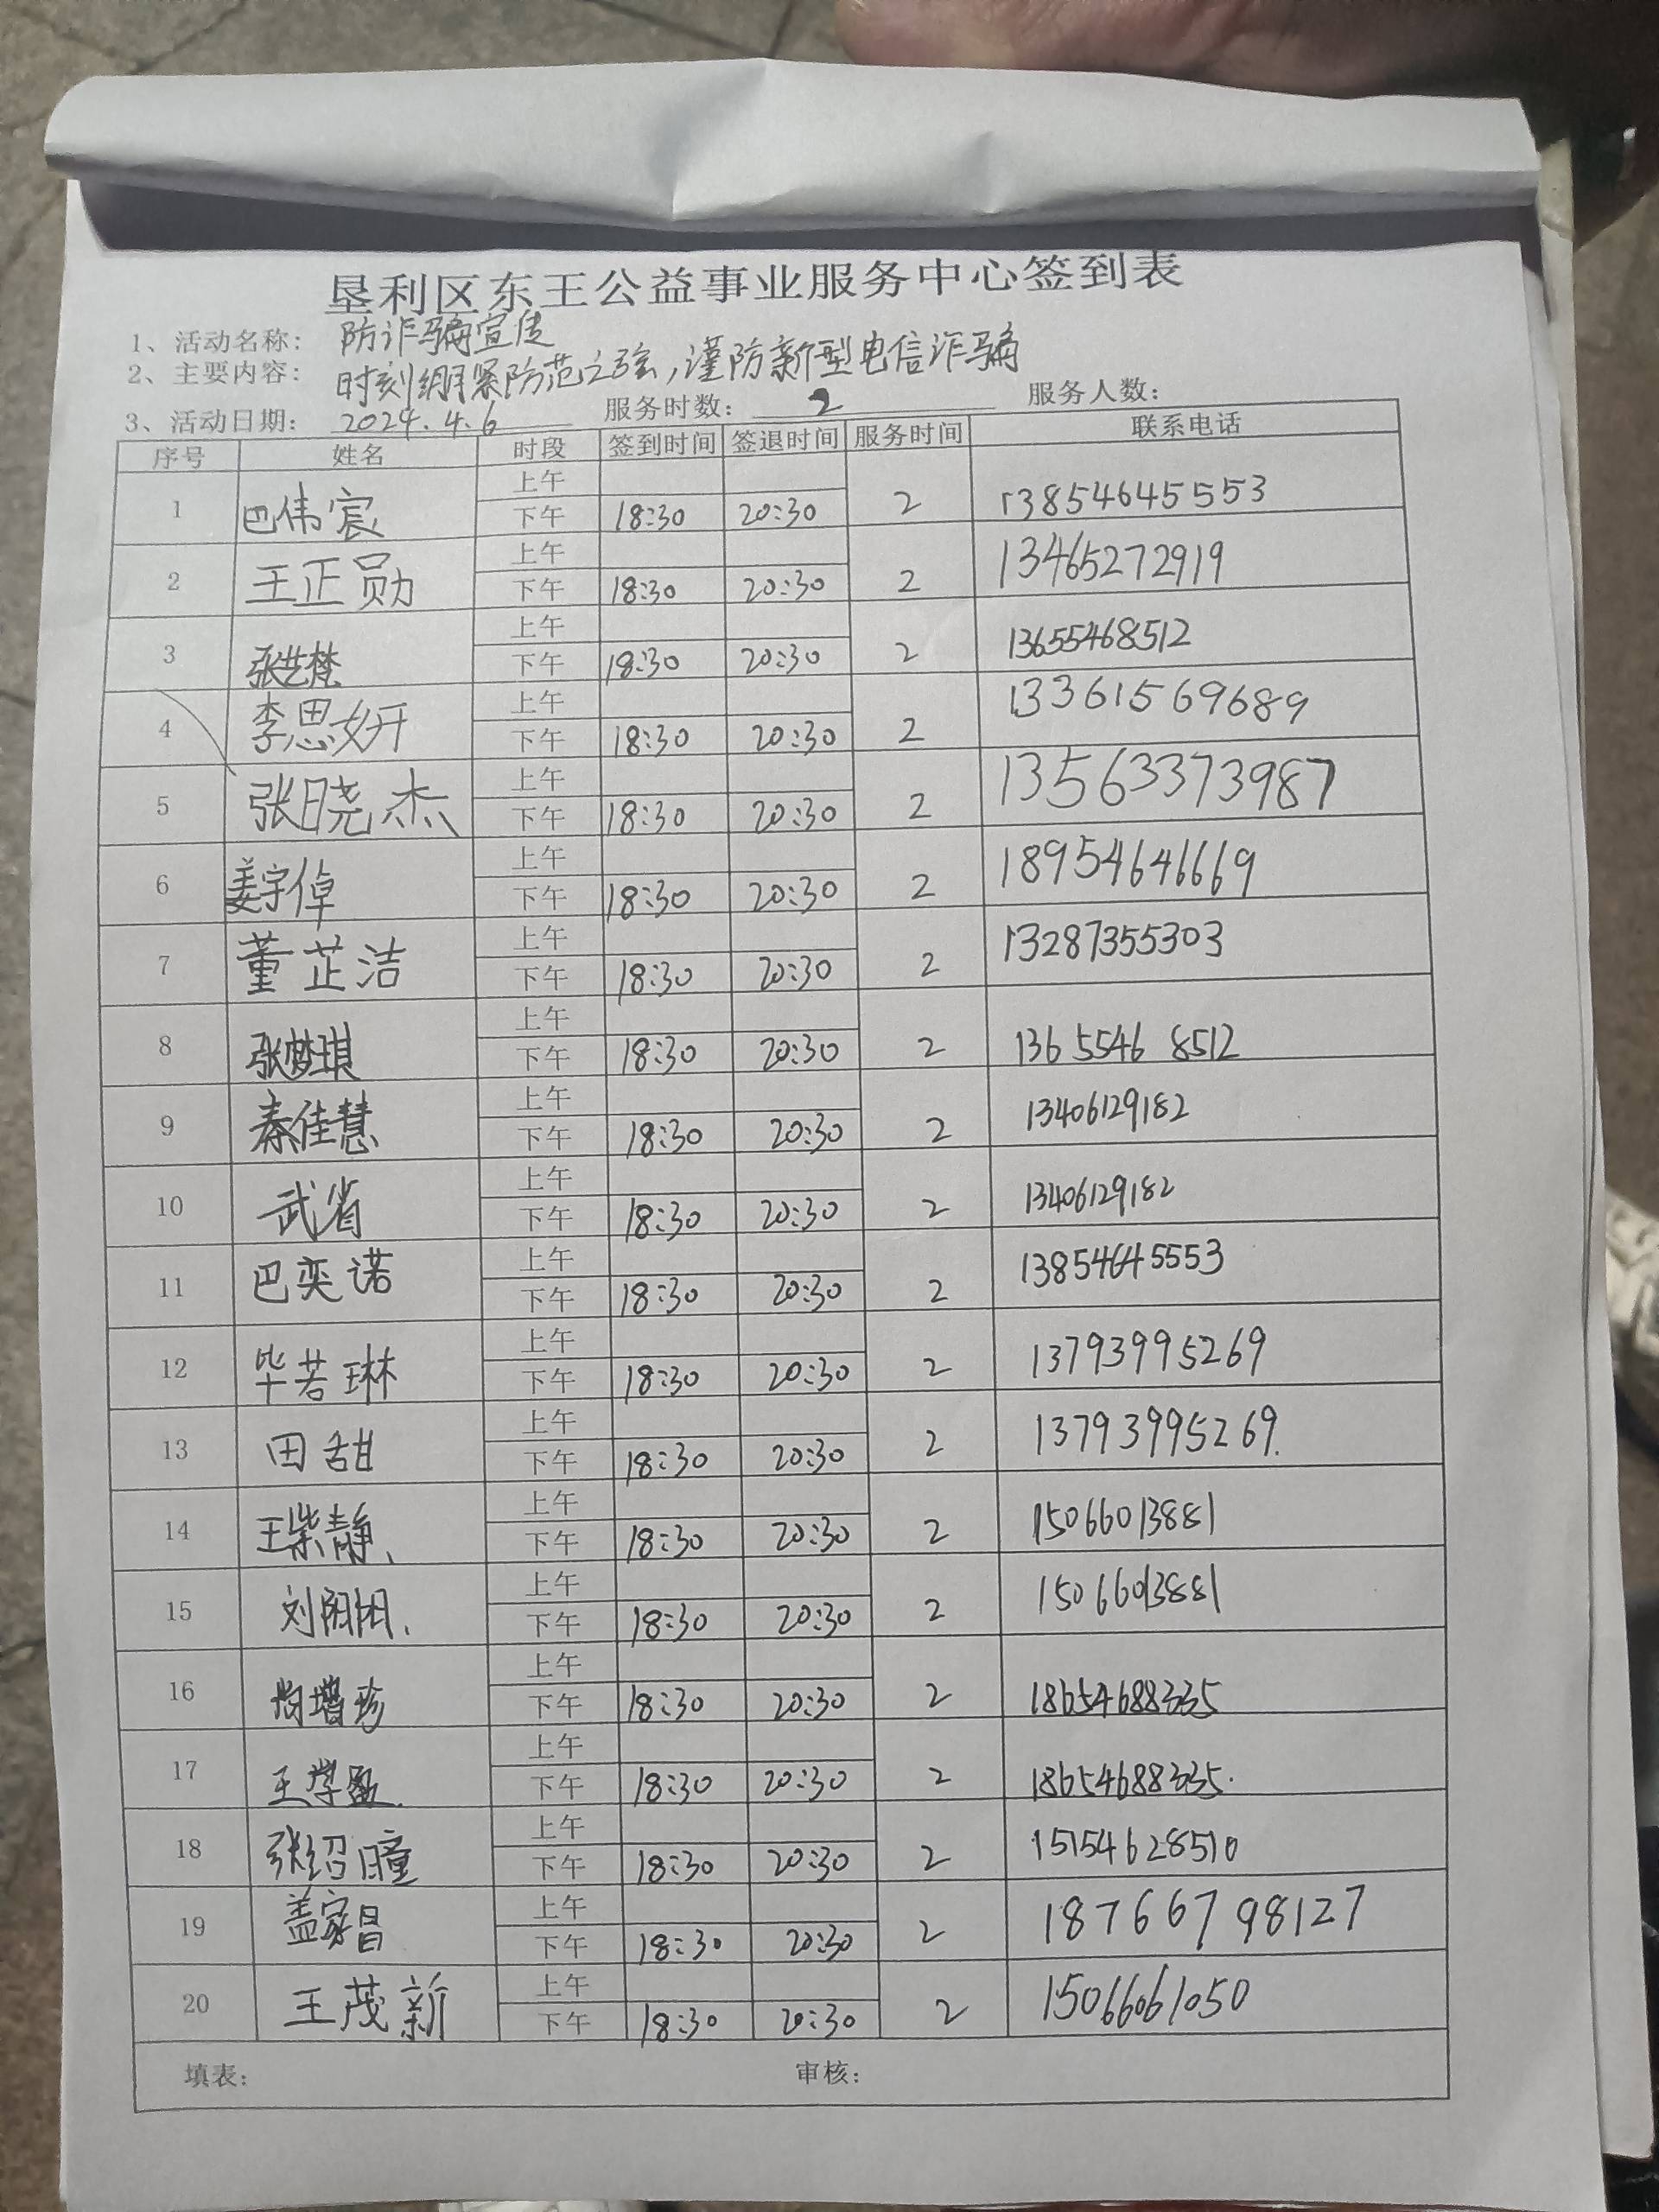 垦利区东王公益事业服务中心签到表
1、活动名称: 防诈骗宣传
2、主要内容: 时刻绷紧防范之弦,谨防新型电信诈骗
3、活动日期: 2024.4.6 服务时数: 2 服务人数:
序号 姓名 时段 签到时间 签退时间 服务时间 联系电话
上午
1 巴伟宸 2 13854645553
下午 18:30 20:30
上午
2 王正勋 2 13465272919
下午 18:30 20:30
上午
3 张艺梵 2 13655468512
下午 18:30 20:30
上午
4 李思妍 2 13361569689
下午 18:30 20:30
上午
5 张晓杰 2 13563373987
下午 18:30 20:30
上午
6 姜宇倬 2 18954646669
下午 18:30 20:30
上午
7 董芷洁 2 13287355303
下午 18:30 20:30
上午
8 张梦琪 2 13655468512
下午 18:30 20:30
上午
9 秦佳慧 2 13406129182
下午 18:30 20:30
上午
10 武省 2 13406129182
下午 18:30 20:30
上午
11 巴奕诺 2 13854645553
下午 18:30 20:30
上午
12 毕若琳 2 13793995269
下午 18:30 20:30
上午
13 田甜 2 13793995269.
下午 18:30 20:30
上午
14 王紫静、 2 15066013881
下午 18:30 20:30
上午
15 刘阳阳. 2 15066013881
下午 18:30 20:30
上午
16 增珍 2 18654688335
下午 18:30 20:30
上午
17 王学 2 18654688335.
下午 18:30 20:30
上午
18 张绍曈 2 15154628510
下午 18:30 20:30
上午
19 盖家昌 2 18766798127
下午 18:30 20:30
上午
20 王茂新 2 15066061050
下午 18:30 20:30
填表: 审核: